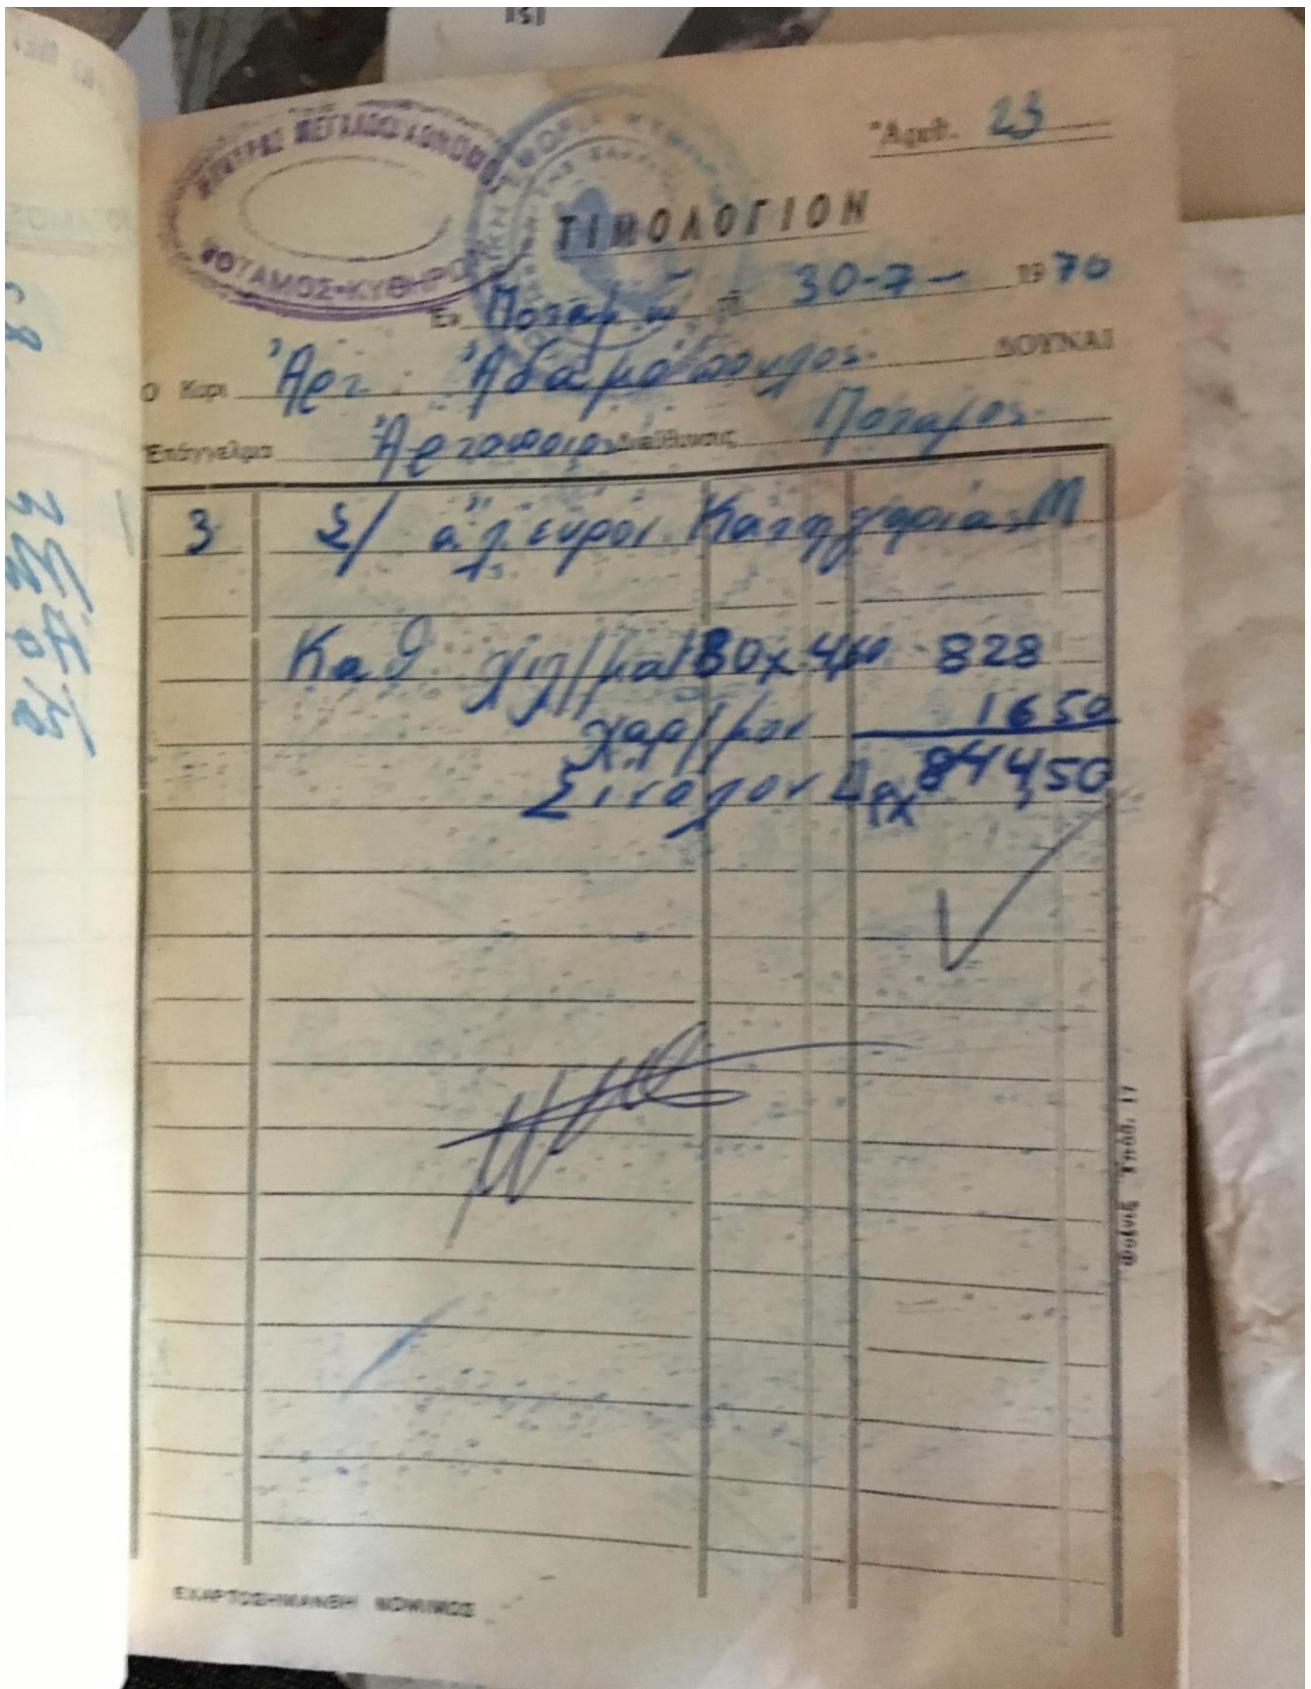 Ἀριθ. 23
ΜΕΓΑΛΟΟΙΚΟΝΟΜΟΣ
ΠΟΤΑΜΟΣ-ΚΥΘΗΡΩΝ
ΤΙΜΟΛΟΓΙΟΝ
Ἐν Ποταμῷ τῇ 30-7- 1970
Ο Κύρι Ἀρτ. Ἀδαμόπουλος. ΔΟΥΝΑΙ
Ἐπάγγελμα Ἀρτοποιός Διεύθυνσις Ποταμός.
3 Σ/ ἀλευροι Κατηγορίας Μ
Καθ χιλ/μα 180 χ 4,60 828
χαρ/μον 1650
Σύνολον Δρχ 844,50
Φοῖνιξ Ὑπόδ. 17
ΕΧΑΡΤΟΣΗΜΑΝΘΗ ΝΟΜΙΜΩΣ